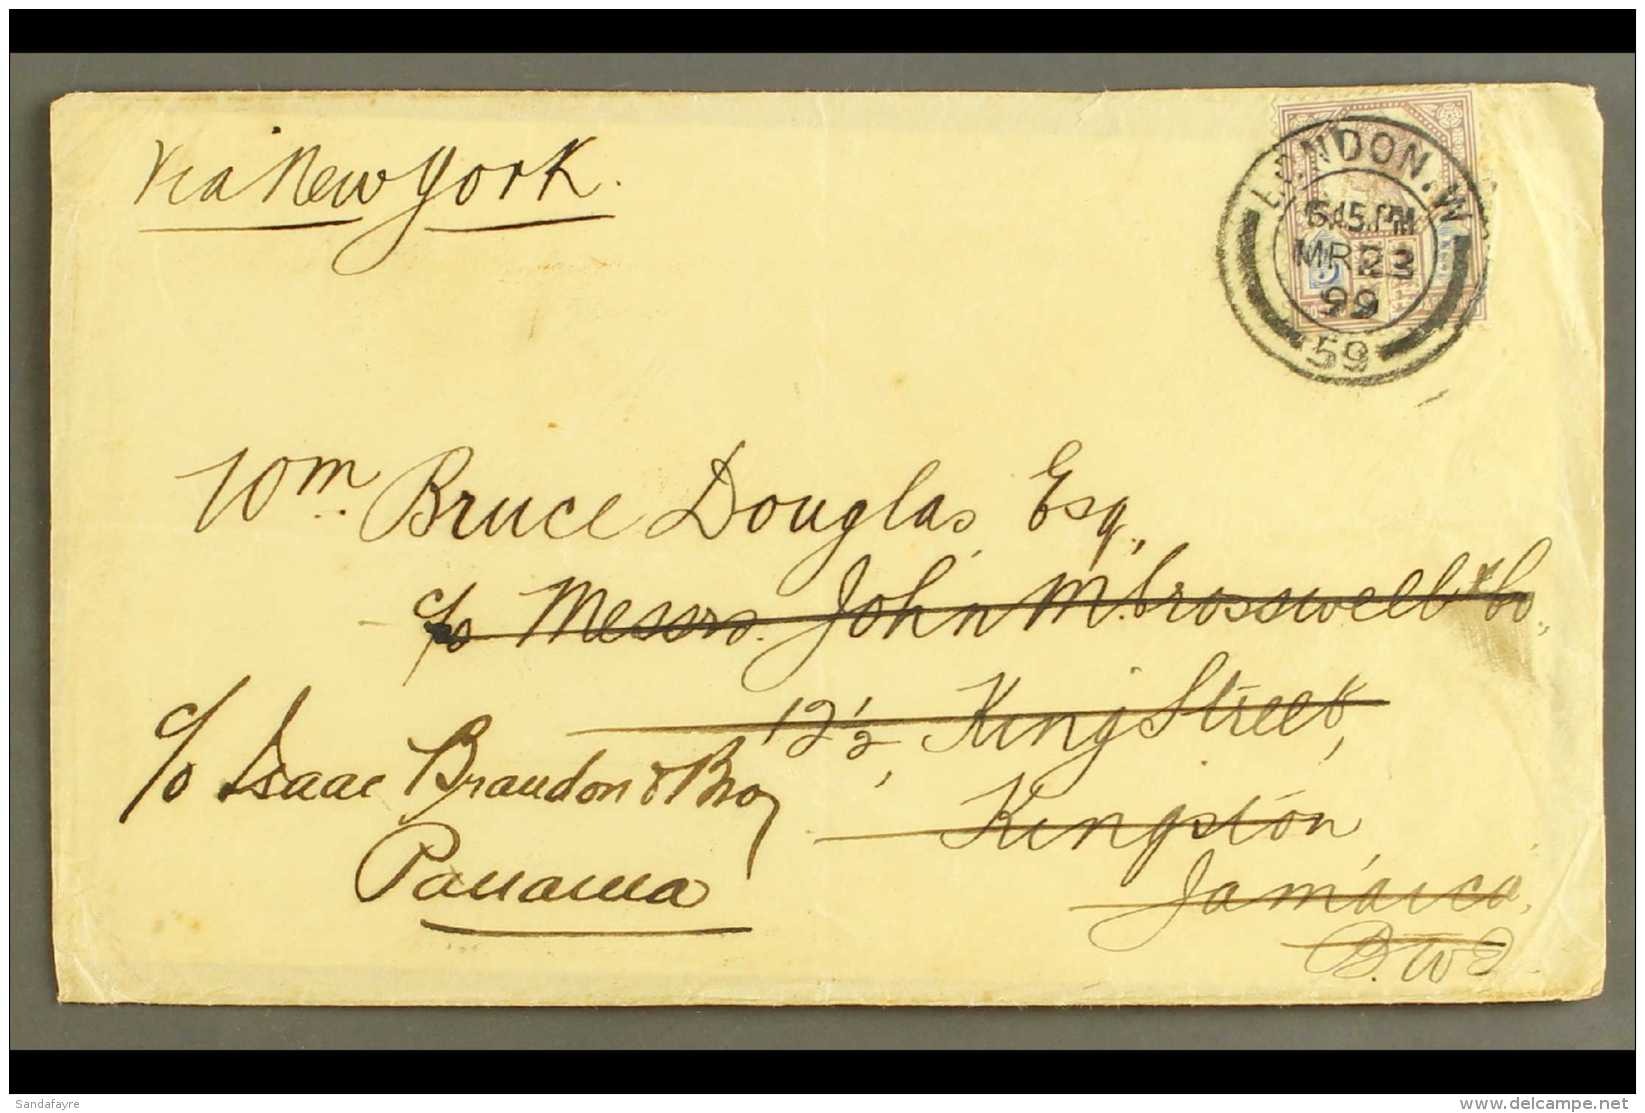 Via New York.
LONDON. W
6.15 PM
MR 23
99
59
Wm. Bruce Douglas Esq.,
c/o Messrs. John M. Crosswell & Co.,
12½, King Street,
Kingston,
Jamaica,
B.W.I.
c/o Isaac Brandon & Bros
Panama
Sandafayre
www.delcampe.net